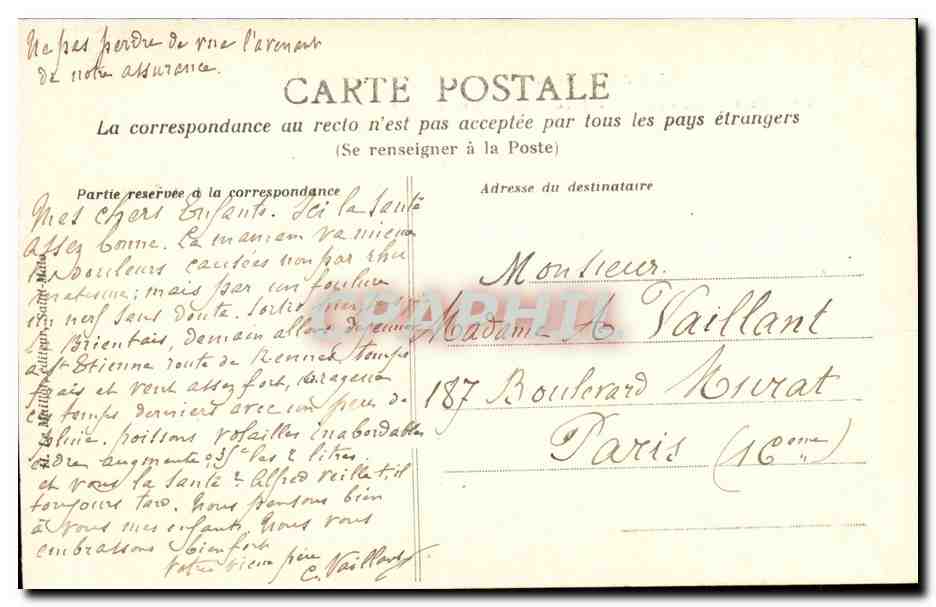 Ne pas perdre de vue l'avenant
de notre assurance.
CARTE POSTALE
La correspondance au recto n'est pas acceptée par tous les pays étrangers
(Se renseigner à la Poste)
Partie reservée à la correspondance
Adresse du destinataire
Mes chers Enfants. Ici la santé
assez bonne. La maman va mieux
douleurs causées non par rhu
matisme; mais par un foulure
nerf sans doute. sortie
Brientais, demain allons dejeuner
a St Etienne route de Rennes, temps
frais et vent assez fort, orageux
ces temps derniers avec un peu de
pluie. poissons volailles inabordables
cidre augmente 0,35c les 2 litres.
et vous la santé ? Alfred veille t,il
toujours tard. Nous pensons bien
à vous mes enfants. Nous vous
embrassons bien fort
Votre vieux père
C. Vaillant
Monsieur.
Madame A Vaillant
187 Boulevard Murat
Paris (16eme)
édit. Saint-Malo
CRAPHIL